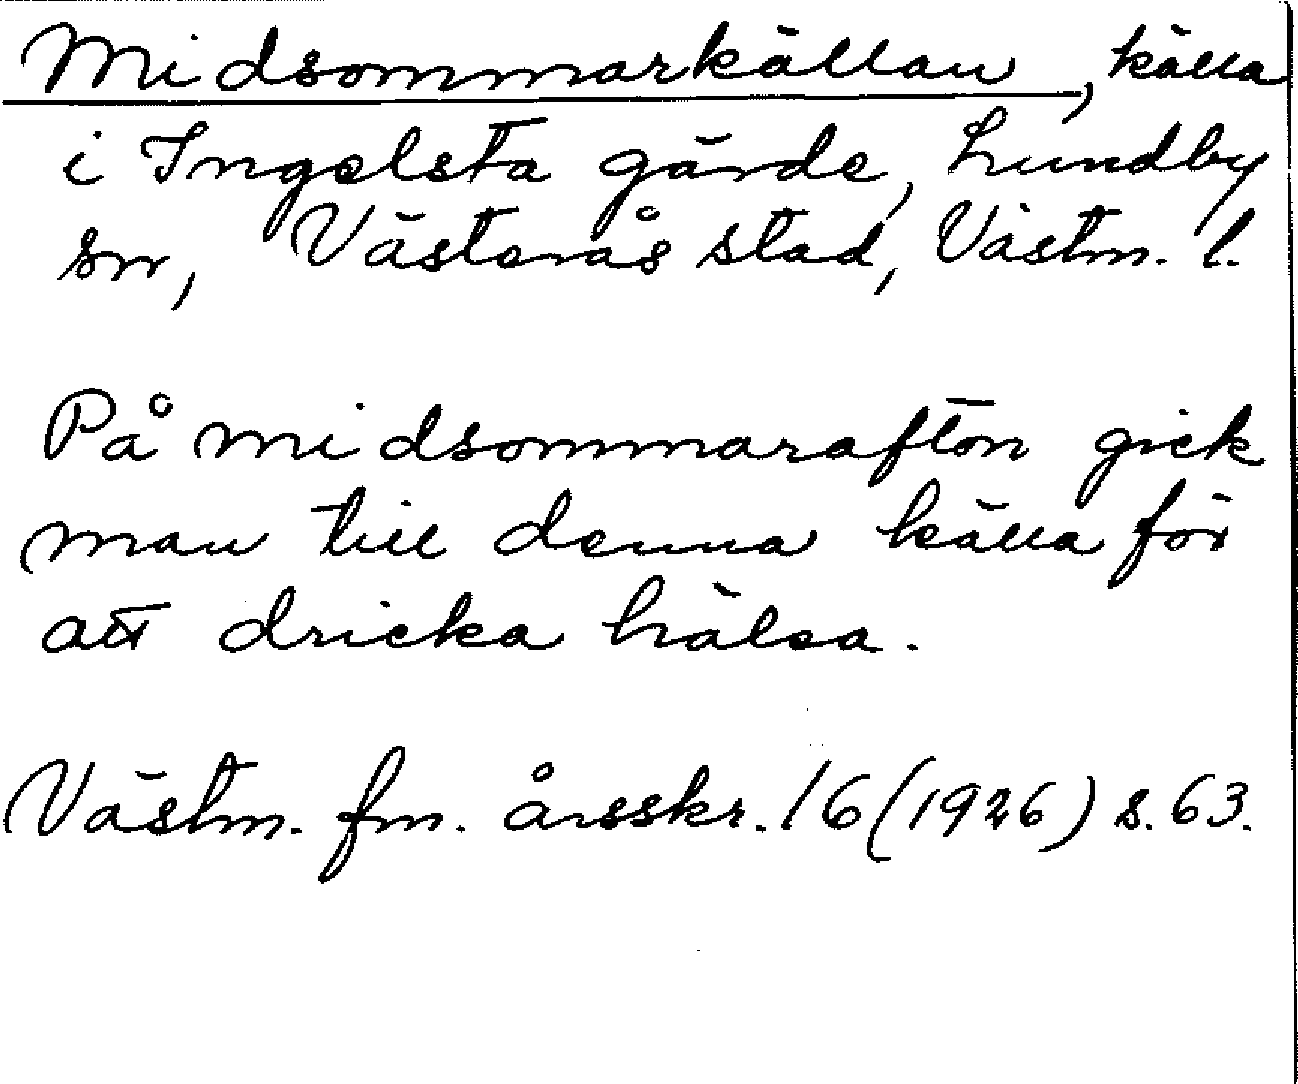 Midsommarkällan, källa
i Ingelsta gärde, Lundby
sn, Västerås stad, Västm. l.
På midsommarafton gick
man till denna källa för
att dricka hälsa.
Västm. fm. årsskr. 16 (1926) s. 63.